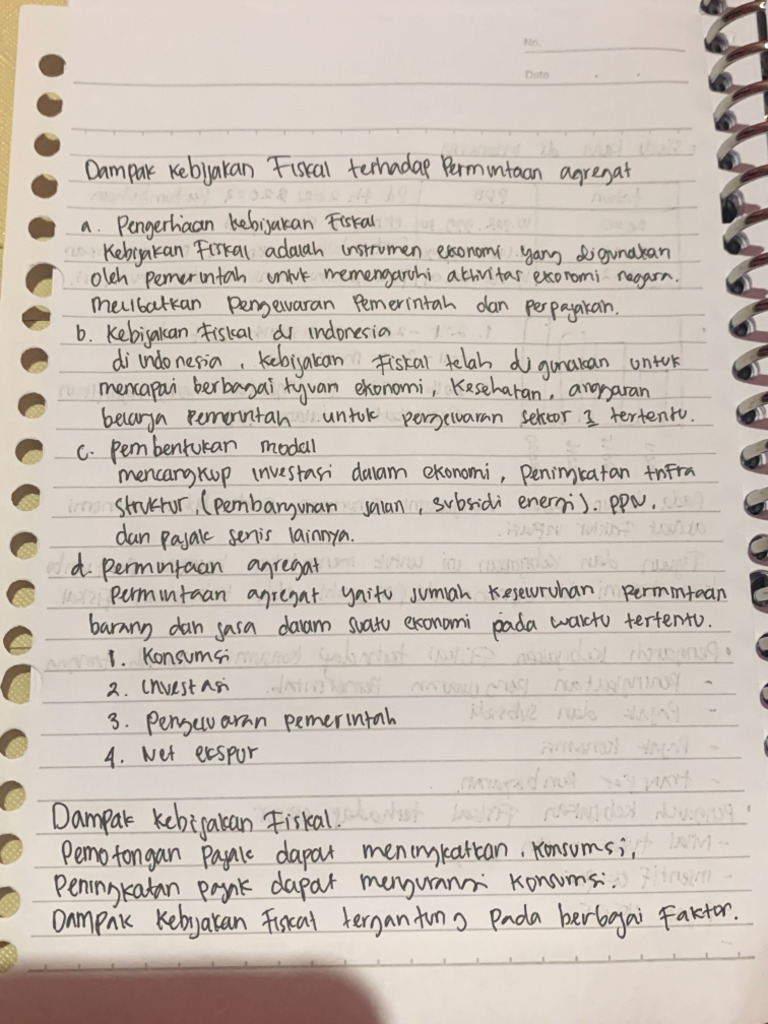 No.
Date
Dampak kebijakan Fiskal terhadap Permintaan agregat
a. Pengertiaan kebijakan Fiskal
Kebijakan Fiskal adalah instrumen ekonomi yang digunakan
oleh pemerintah untuk memengaruhi aktivitas ekonomi negara.
melibatkan Pengeluaran Pemerintah dan perpajakan.
b. Kebijakan Fiskal di indonesia
di indonesia, kebijakan Fiskal telah digunakan untuk
mencapai berbagai tujuan ekonomi, Kesehatan, anggaran
belanja Pemerintah untuk pengeluaran sektor 2 tertentu.
c. pembentukan modal
mencangkup investasi dalam ekonomi, Peningkatan infra
struktur, (Pembangunan jalan, subsidi energi). PPN.
dan pajak jenis lainnya.
d. permintaan agregat
permintaan agregat yaitu jumlah keseluruhan permintaan
barang dan jasa dalam suatu ekonomi pada waktu tertentu.
1. Konsumsi
2. investasi
3. pengeluaran pemerintah
4. Net ekspor
Dampak kebijakan Fiskal.
Pemotongan pajak dapat meningkatkan, konsumsi,
Peningkatan pajak dapat mengurangi konsumsi.
Dampak kebijakan Fiskal tergantung pada berbagai Faktor.